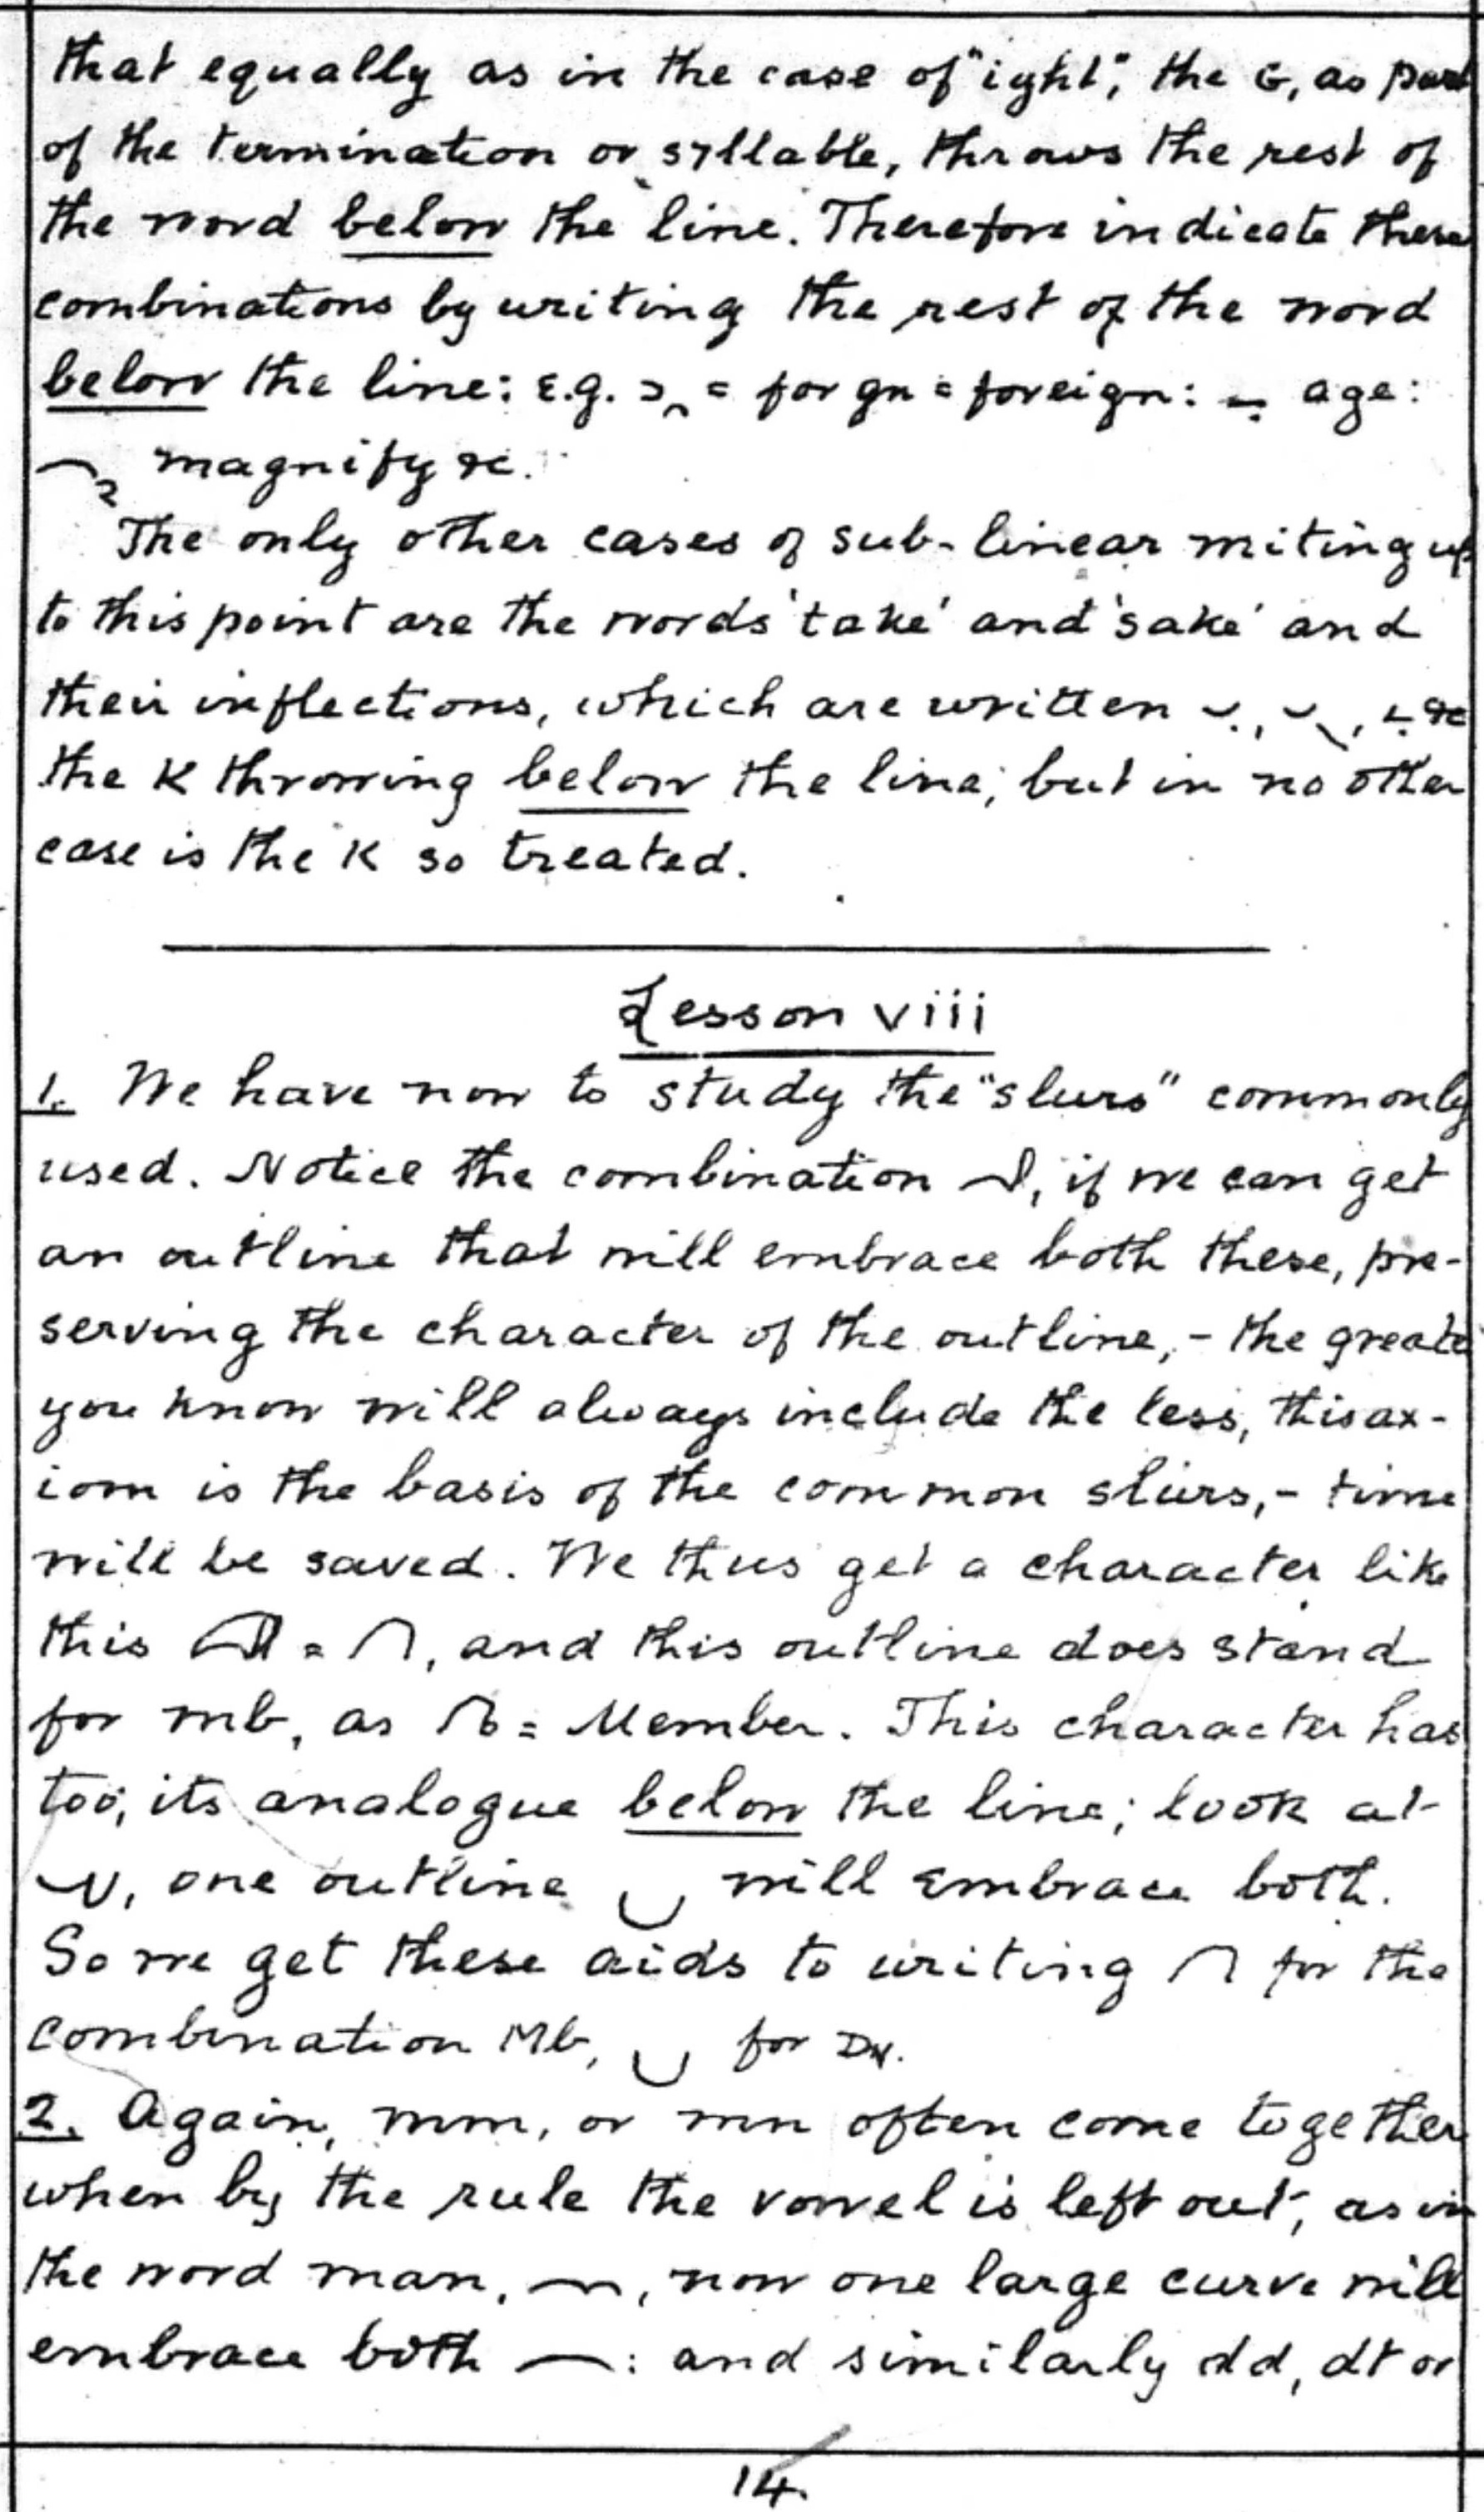 that equally as in the case of "ight", the G, as part
of the termination or syllable, throws the rest of
the word below the line. Therefore indicate these
combinations by writing the rest of the word
below the line: E.g. = for gn = foreign: age:
magnify &c.
The only other cases of sub-linear writing up
to this point are the words 'take' and 'sake' and
their inflections, which are written , , &c
the K throwing below the line; but in no other
case is the K so treated.
Lesson viii
1. We have now to study the "slurs" commonly
used. Notice the combination , if we can get
an outline that will embrace both these, pre-
serving the character of the outline, - the greater
you know will always include the less, this ax-
iom is the basis of the common slurs, - time
will be saved. We thus get a character like
this = , and this outline does stand
for mb, as = Member. This character has
too, its analogue below the line; look at
, one outline will embrace both.
So we get these aids to writing for the
combination Mb, for
2. Again, mm, or mn often come together
when by the rule the vowel is left out, as in
the word man, , now one large curve will
embrace both : and similarly dd, dt or
14.